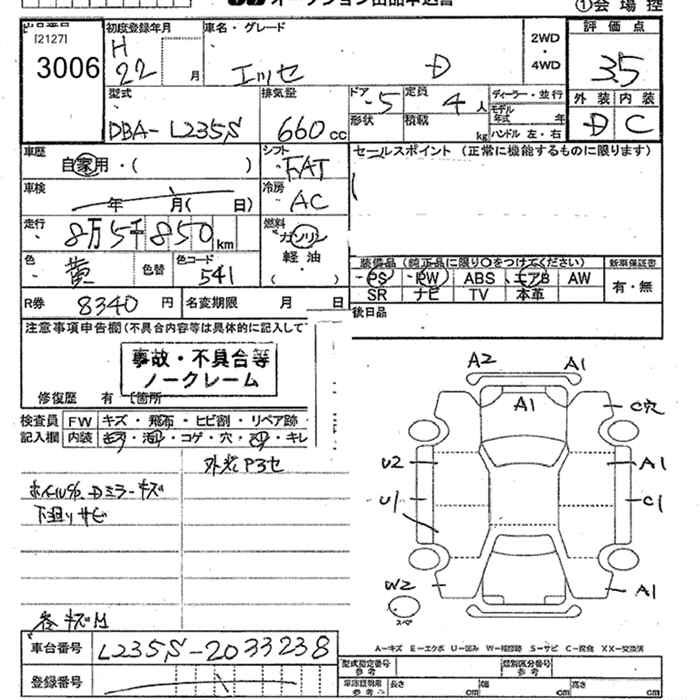 オークション出品申込書
①会場控
[2127]
3006
初度登録年月
H
22
月
車名・グレード
エッセ D
2WD
・
4WD
評価点
3.5
外装 内装
D C
型式
DBA-L235S
排気量
660 cc
ドア 5
定員 4 人
形状
積載 kg
ディーラー・並行
モデル年式 年
ハンドル 左・右
車歴
自家用・( )
シフト
FAT
セールスポイント (正常に機能するものに限ります)
車検
年 月( 日)
冷房
AC
走行
8万5千850 km
燃料
ガソリン
軽油
( )
色
黄
色替
色コード
541
装備品 (純正品に限り○をつけてください)
新車保証書
PS PW ABS エアB AW
SR ナビ TV 本革
有・無
R券 8340 円
名変期限 月 日
後日品
注意事項申告欄(不具合内容等は具体的に記入して
事故・不具合等
ノークレーム
修復歴 有 〔箇所
検査員
記入欄
FW キズ・飛石・ヒビ割・リペア跡
内装 キズ・汚れ・コゲ・穴・スリ・キレ
ホイル% Dミラーキズ
下廻りサビ
各キズH
A2 A1
A1
C穴
U2 A1
U1 C1
W2 A1
スペア
A-キズ E-エクボ U-凹み W-補修跡 S-サビ C-腐食 XX-交換済
車台番号 L235S-2033238
登録番号
型式指定番号
参考
類別区分番号
参考
車庫証明用
参考
長さ cm
幅 cm
高さ cm